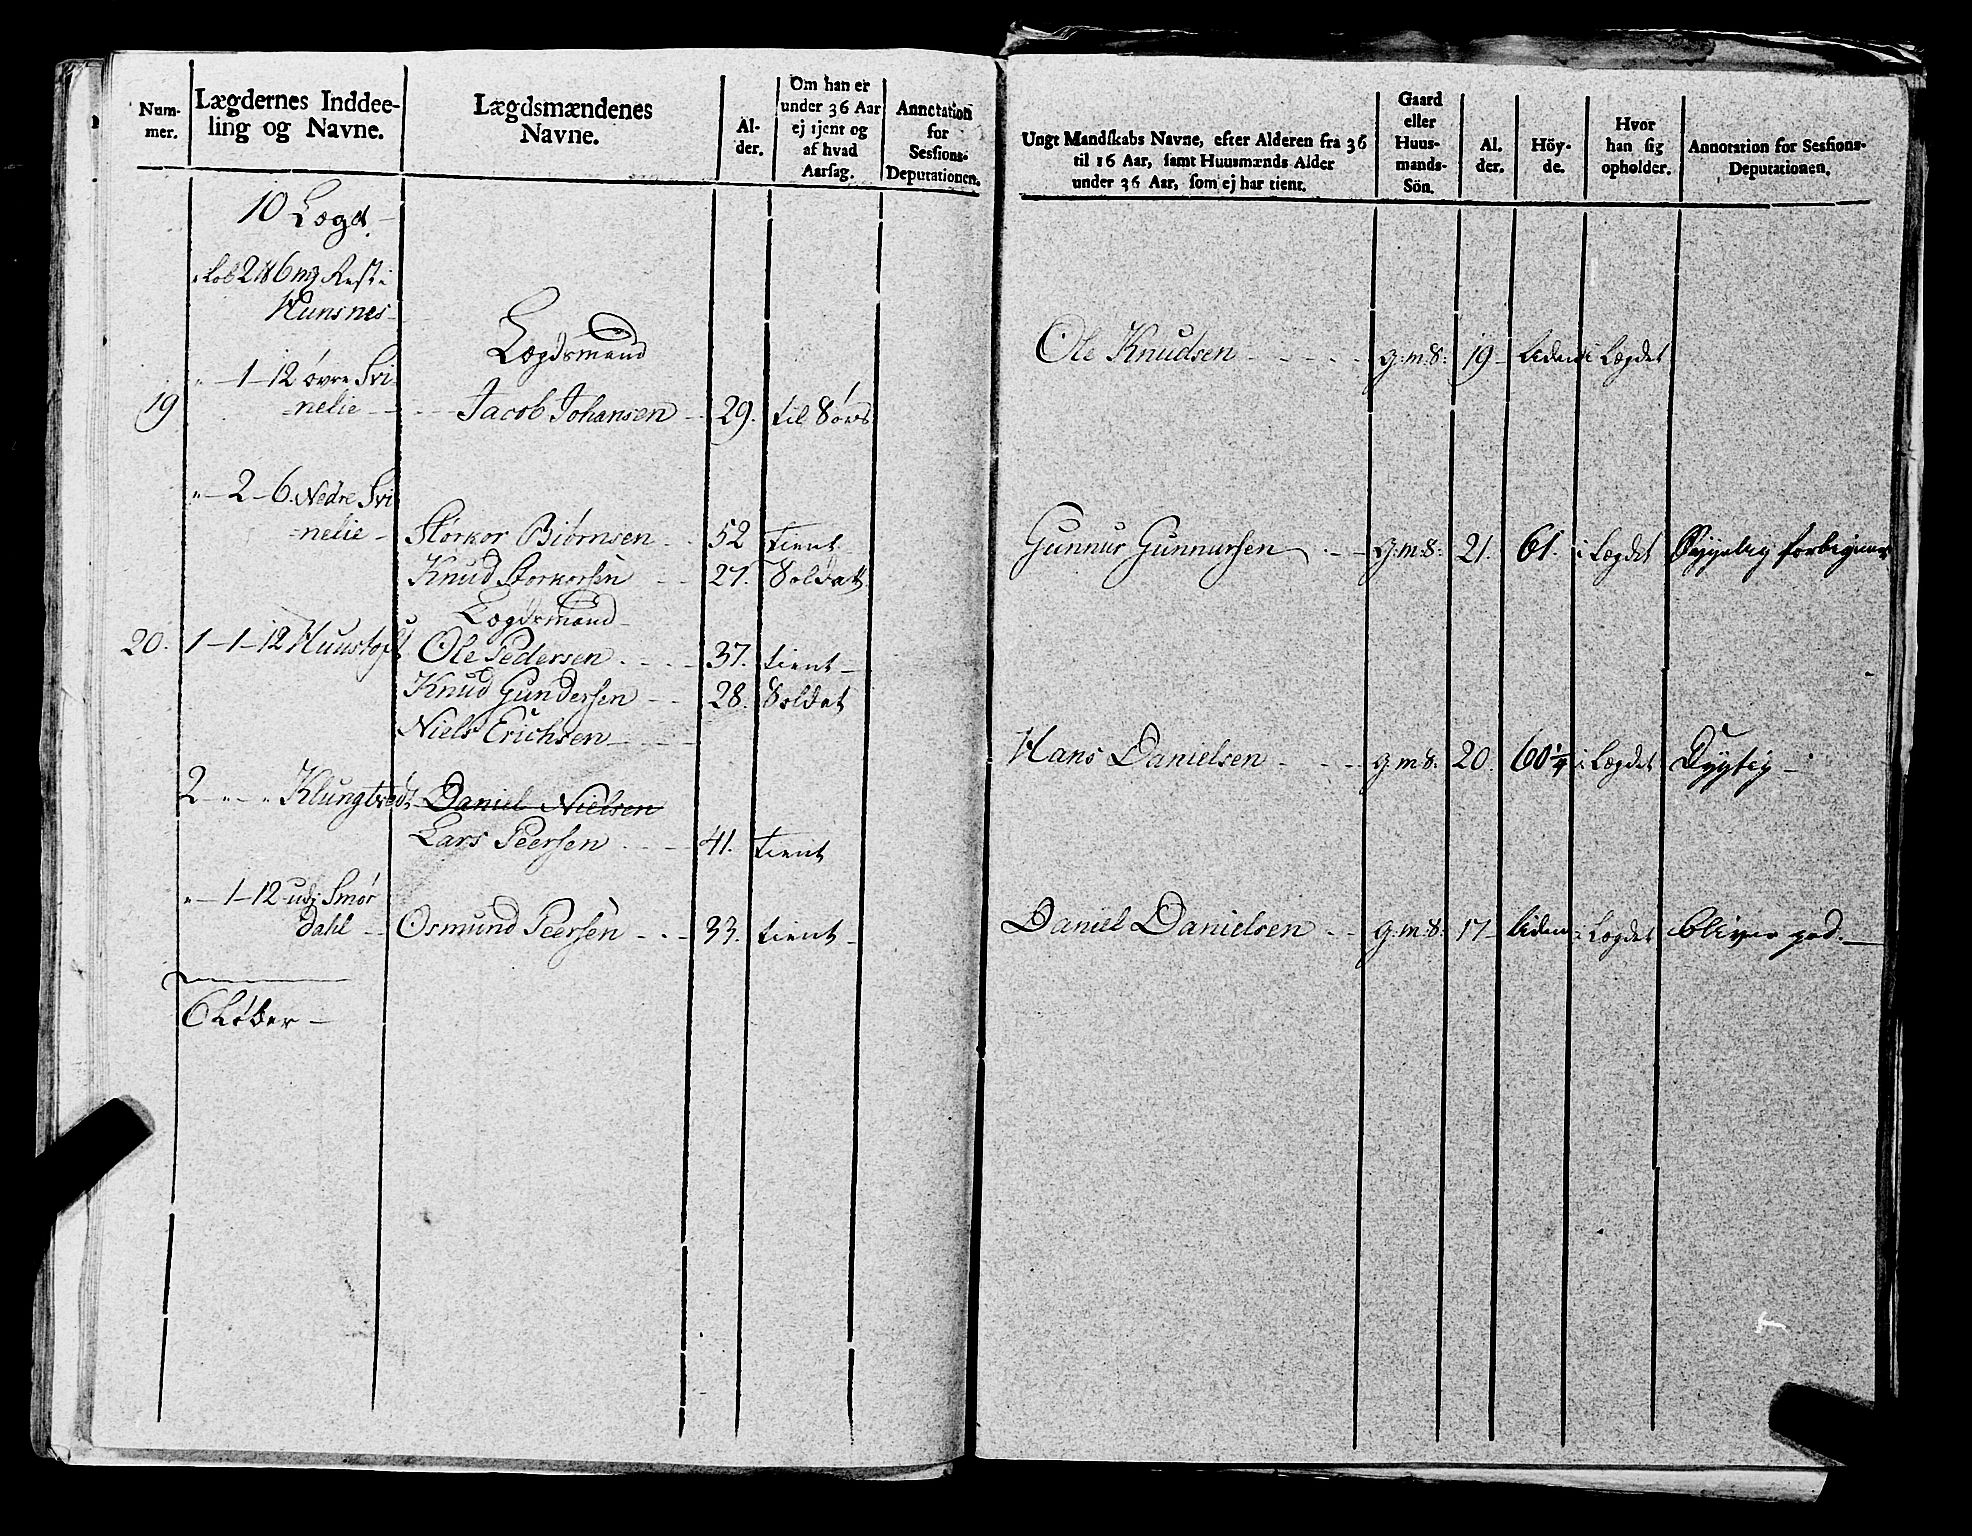 Num-
mer.
Lægdernes Inddee-
ling og Navne.
Lægdsmændenes
Navne.
Al-
der.
Om han er
under 36 Aar
ej tjent og
af hvad
Aarsag.
Annotation
for
Sessions-
Deputationen.
10 Lægd
Rest i
Hunsnes
Lægdsmand
" - 1 - 12 øvre Svi-
19 nelie - Jacob Johansen - 29. til Søes
" - 2 - 6. Nedre Svi
nelie - Størkor Biørnsen - 52 tient
Knud Storkorsen - 27. Soldat
Lægdsmand
20. 1 - 1 - 12 Huustoft Ole Pedersen - 37. tient -
Knud Gundersen - 28. Soldat
Niels Erichsen -
2 " " Klungtvedt Daniel Nielsen
Lars Peersen - 41. tient
" - 1 - 12 udj Smør
dahl - Osmund Peersen - 33. tient -
6 Løber -
Ungt Mandskabs Navne, efter Alderen fra 36
til 16 Aar, samt Huusmænds Alder
under 36 Aar, som ej har tient.
Gaard
eller
Huus-
mands-
Sön.
Al.
der.
Höy-
de.
Hvor
han sig
opholder.
Annotation for Sessions-
Deputationen.
Ole Knudsen - g:m:S: 19 - liden i Lægdet
Gunnur Gunnursen - g:m:S: 21. 61. i Lægdet
Hans Danielsen - g:m:S: 20. 60 1/4 i Lægdet Dygtig -
Daniel Danielsen - g:m:S: 17 - liden i Lægdet bliver god. -